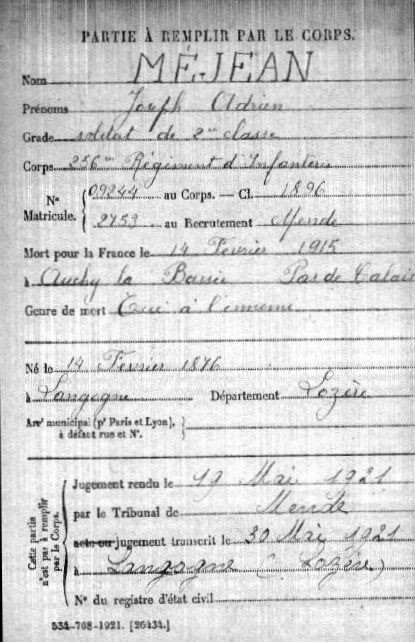 PARTIE À REMPLIR PAR LE CORPS.
Nom MÉJEAN
Prénoms Joseph Adrien
Grade soldat de 2me classe
Corps 256me Régiment d'Infanterie
N° Matricule. 09244 au Corps. — Cl. 1896
2753 au Recrutement Mende
Mort pour la France le 14 Fevrier 1915
à Auchy la Bassée Pas de Calais
Genre de mort Tué à l'ennemi
Né le 14 Fevrier 1876
à Langogne Département Lozère
Arrt municipal (pr Paris et Lyon), à défaut rue et N°.
Cette partie n'est pas à remplir par le Corps.
Jugement rendu le 19 Mai 1921
par le Tribunal de Mende
acte ou jugement transcrit le 30 Mai 1921
à Langogne (Lozère)
N° du registre d'état civil
534-708-1921. [26434.]